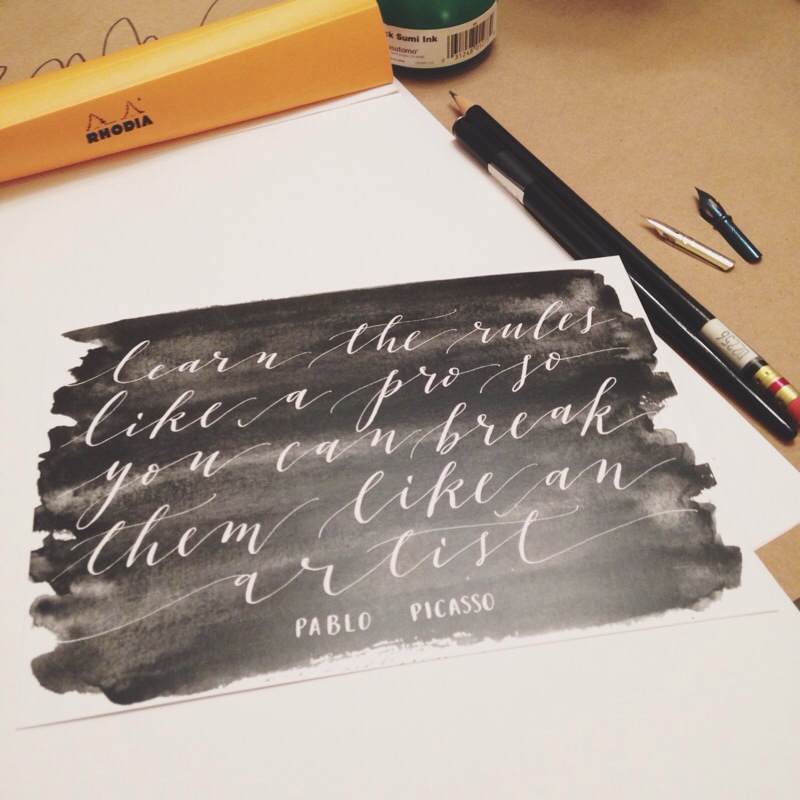 RHODIA
ck Sumi Ink
learn the rules
like a pro so
you can break
them like an
artist
PABLO PICASSO